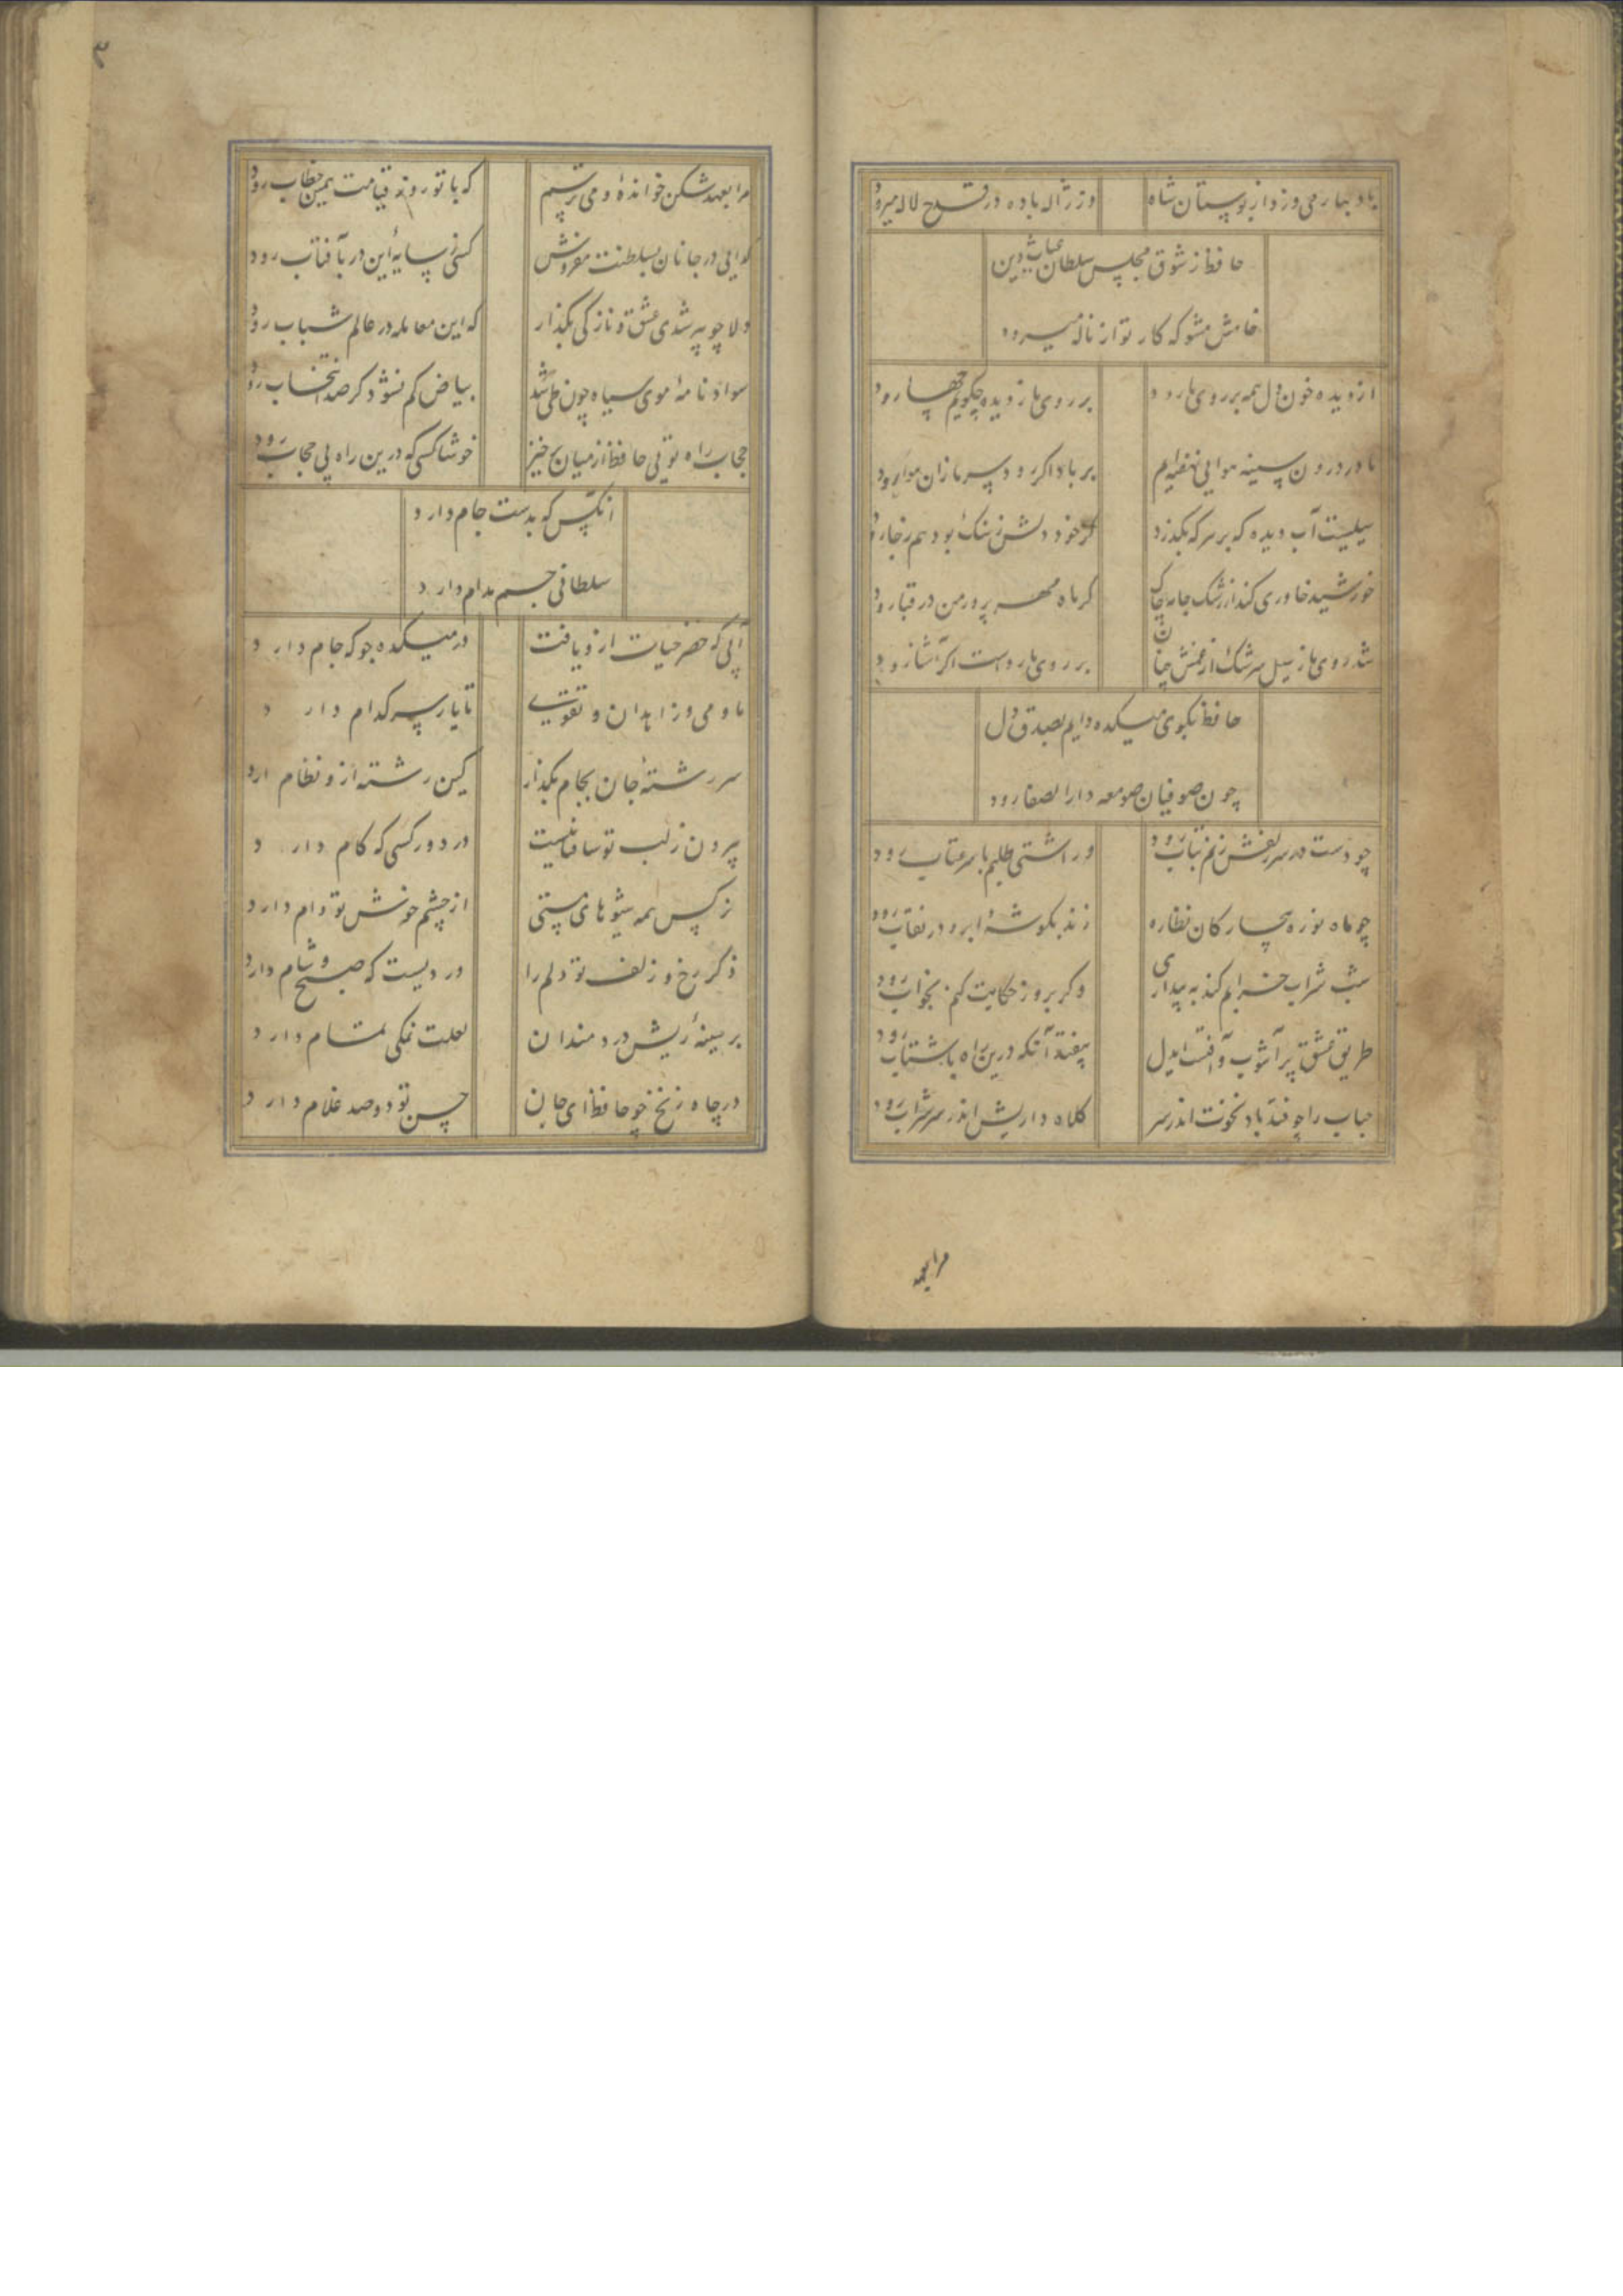 باد بهار می وزد از بوستان شاه وز ژاله باده در قدح لاله میرود
حافظ ز شوق مجلس سلطان غیاث دین
خامش مشو که کار تو از ناله میرود
از دیده خون دل همه بر روی ما رود بر روی ما ز دیده چکویم چها رود
ما در درون سینه هوایی نهفته‌ایم بر باد اکر رود سر ما زان هوا رود
سیلیست آب دیده که بر هر که بکذرد کر خود دلش ز سنک بود هم ز جا رود
خورشید خاوری کند از رشک جامه چاک کر ماه مهر پرور من در قبا رود
شد روی ما ز سیل سرشک از غمش چنان بر روی ما رواست اکر آشنا رود
حافظ بکوی میکده دایم بصدق دل
چون صوفیان صومعه دار الصفا رود
چو دست در سر زلفش زنم بتاب رود ور آشتی طلبم با سر عتاب رود
چو ماه نو ره بیچارکان نظاره زند بکوشهٔ ابرو در نقاب رود
شب شراب خرابم کند به بیداری وکر بروز حکایت کنم بخواب رود
طریق عشق پر آشوب و آفتست ایدل بیفتد آنکه درین راه با شتاب رود
حباب را چو فتد باد نخوت اندر سر کلاه داریش اندر سر شراب رود
مرا بعهد
۳
مرا بعهد شکن خواندهٔ و می ترسم که با تو روز قیامت همین خطاب رود
کدایی در جانان بسلطنت مفروش کسی ز سایهٔ این در بآفتاب رود
دلا چو پیر شدی عشق و نازکی بکذار که این معامله در عالم شباب رود
سواد نامهٔ موی سیاه چون طی شد بیاض کم نشود کر صد انتخاب رود
حجاب راه تویی حافظ از میان برخیز خوشا کسی که درین راه بی حجاب رود
آنکس که بدست جام دارد
سلطانی جم مدام دارد
آبی که خضر حیات ازو یافت در میکده جو که جام دارد
ما و می و زاهدان و تقوی تا یار سر کدام دارد
سر رشتهٔ جان بجام بکذار کین رشته ازو نظام دارد
بیرون ز لب تو ساقیا نیست در دور کسی که کام دارد
نرکس همه شیوهای مستی از چشم خوشش تو دام دارد
ذکر رخ و زلف تو دلم را وردیست که صبح و شام دارد
بر سینهٔ ریش دردمندان لعلت نمکی تمام دارد
در چاه زنخ چو حافظ ای جان حسن تو دو صد غلام دارد